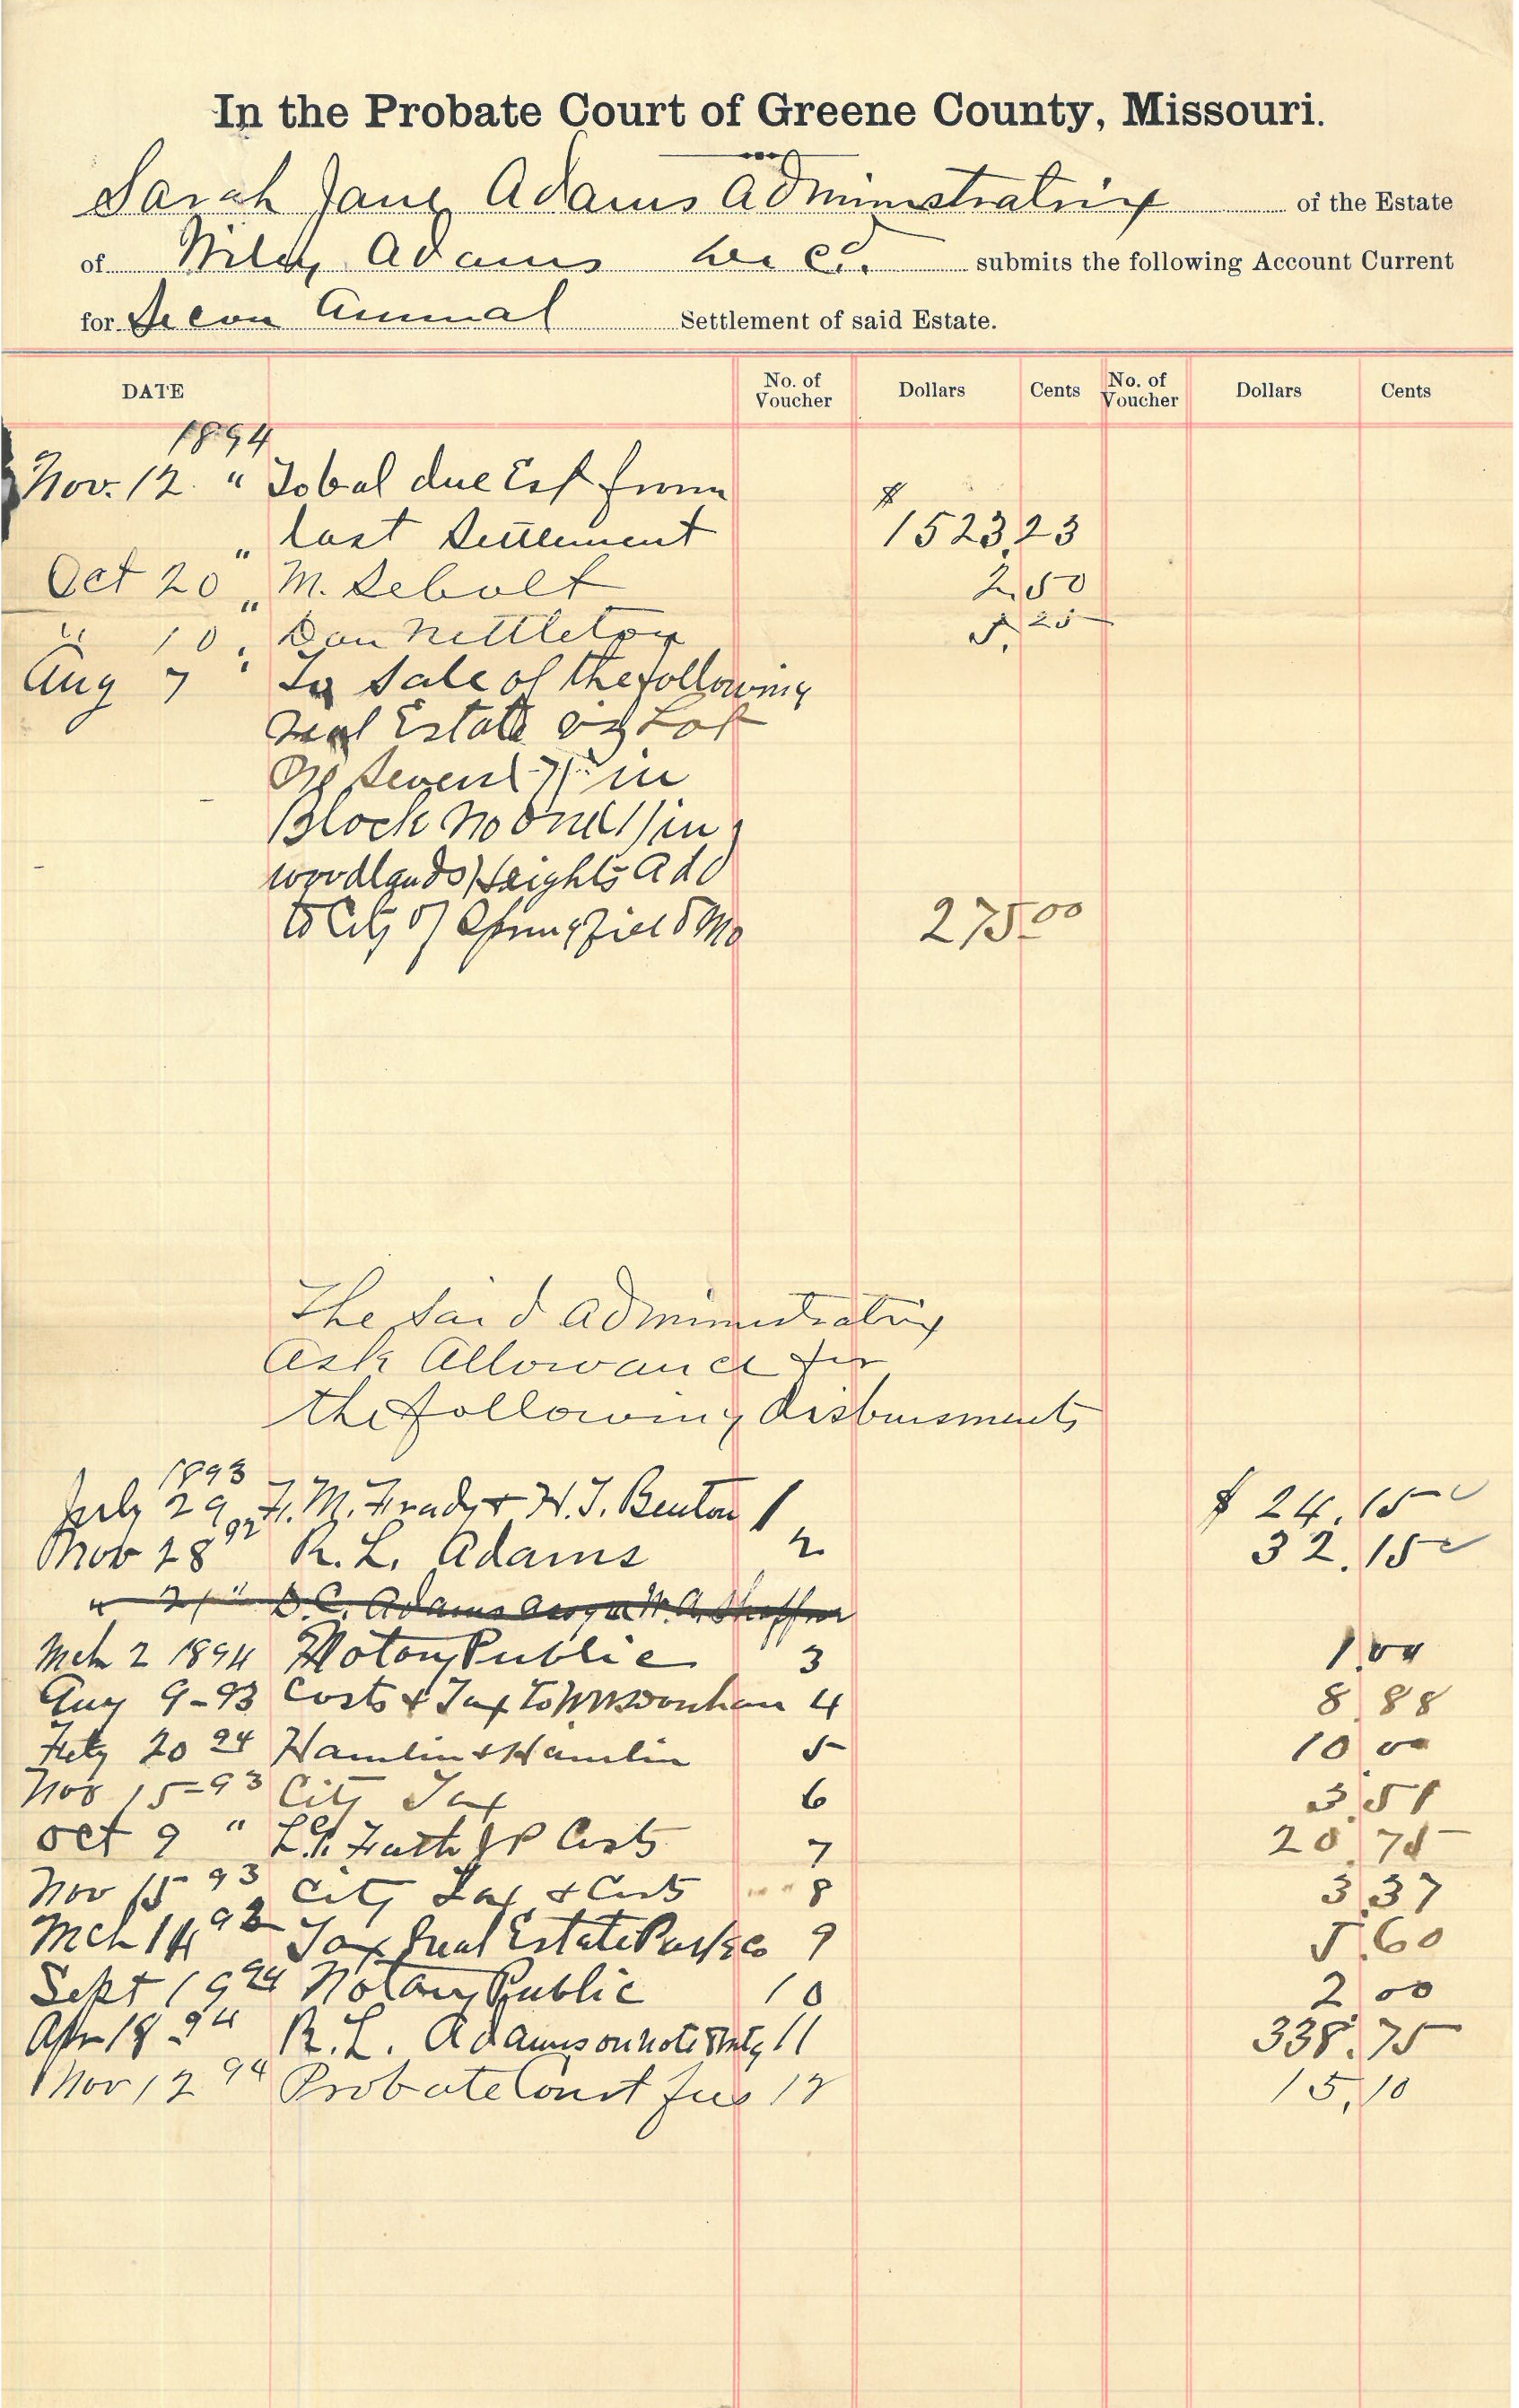 In the Probate Court of Greene County, Missouri.
Sarah Jane Adams Administratrix of the Estate
of Wiley Adams dec'd. submits the following Account Current
for Secon Annual Settlement of said Estate.
DATE No. of Voucher Dollars Cents No. of Voucher Dollars Cents
1894
Nov. 12 " To bal due Est from
last Settlement $ 1523.23
Oct 20 " M. Sebolt 2.50
" 10 " Dan Nettleton 5.25
Aug 7 " To Sale of the following
real Estate viz Lot
No Seven (7) in
Block No One (1) in
Woodlands Heights Add
to City of Springfield Mo 275 00
The Said Administratrix
Ask Allowance for
the following disbursments
1893
July 29 F. M. & H. T. Benton 1 $ 24.15
Nov 28 92 R. L. Adams 2 32.15
" 21 " D. C. Adams W. A. Shaffner
Mch 2 1894 Notary Public 3 1.00
Aug 9-93 Costs & Tax to 4 8.88
20 94 Hamlin & Hamlin 5 10 00
Nov 15-93 City Tax 6 3.51
Oct 9 " JP Costs 7 20.75
Nov 15 93 City Tax & Costs 8 3.37
Mch 14 Tax Real Estate 9 5.60
Sept 19 94 Notary Public 10 2 00
Apr 18-94 R. L. Adams on note 11 338.75
Nov 12 94 Probate Court fees 12 15.10